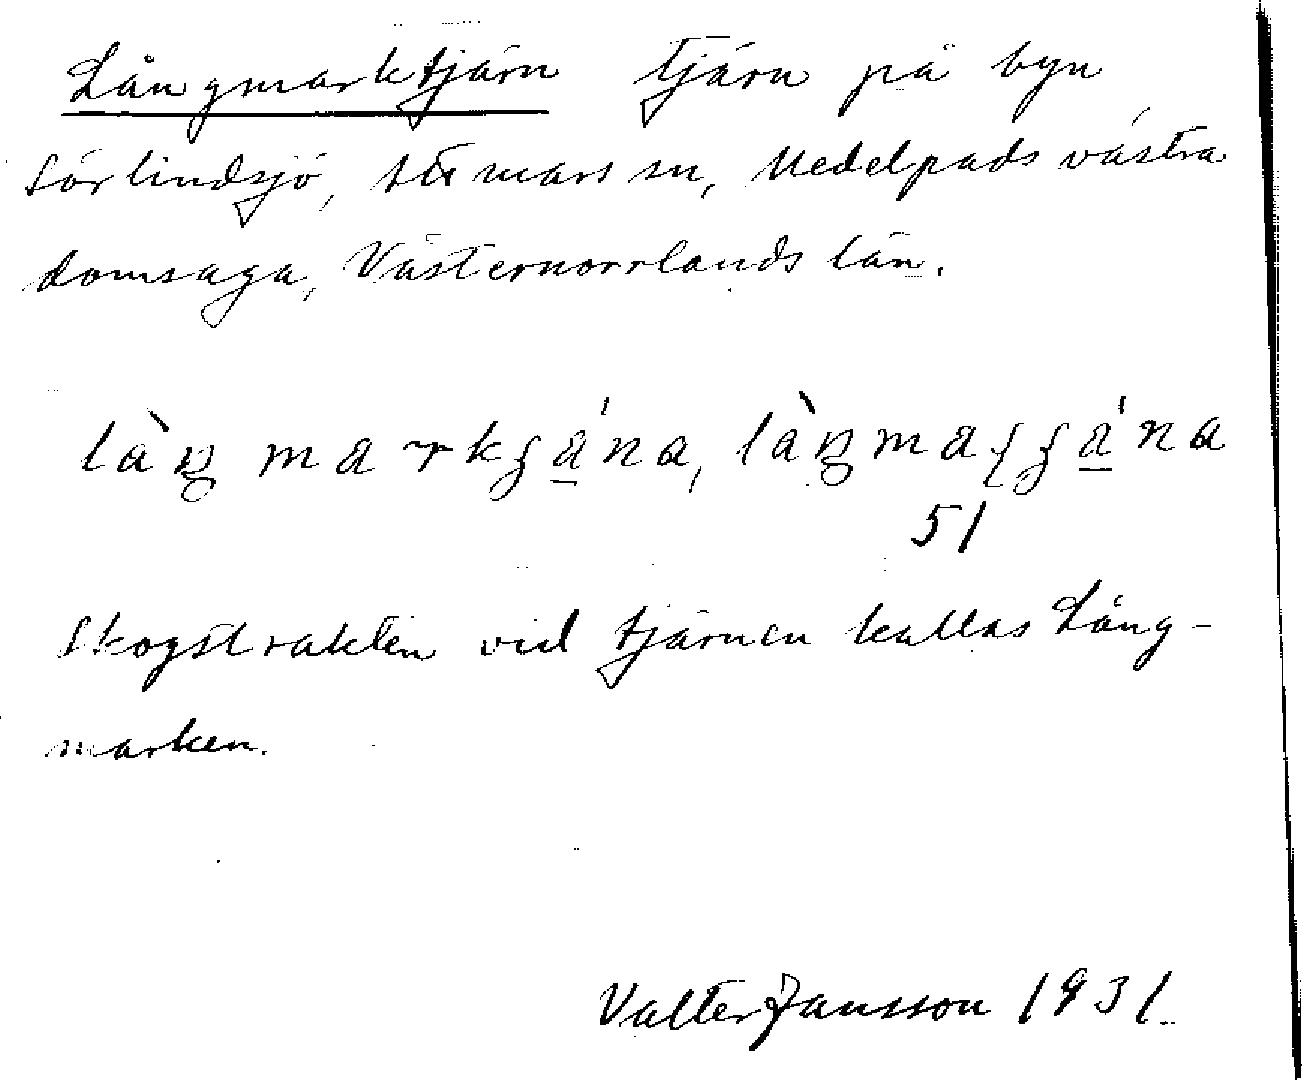 Långmarktjärn tjärn på byn
Sörlindsjö, Attmars sn, Medelpads västra
domsaga, Västernorrlands län.
51
Skogstrakten vid tjärnen kallas Lång-
marken.
Valter Jansson 1931.